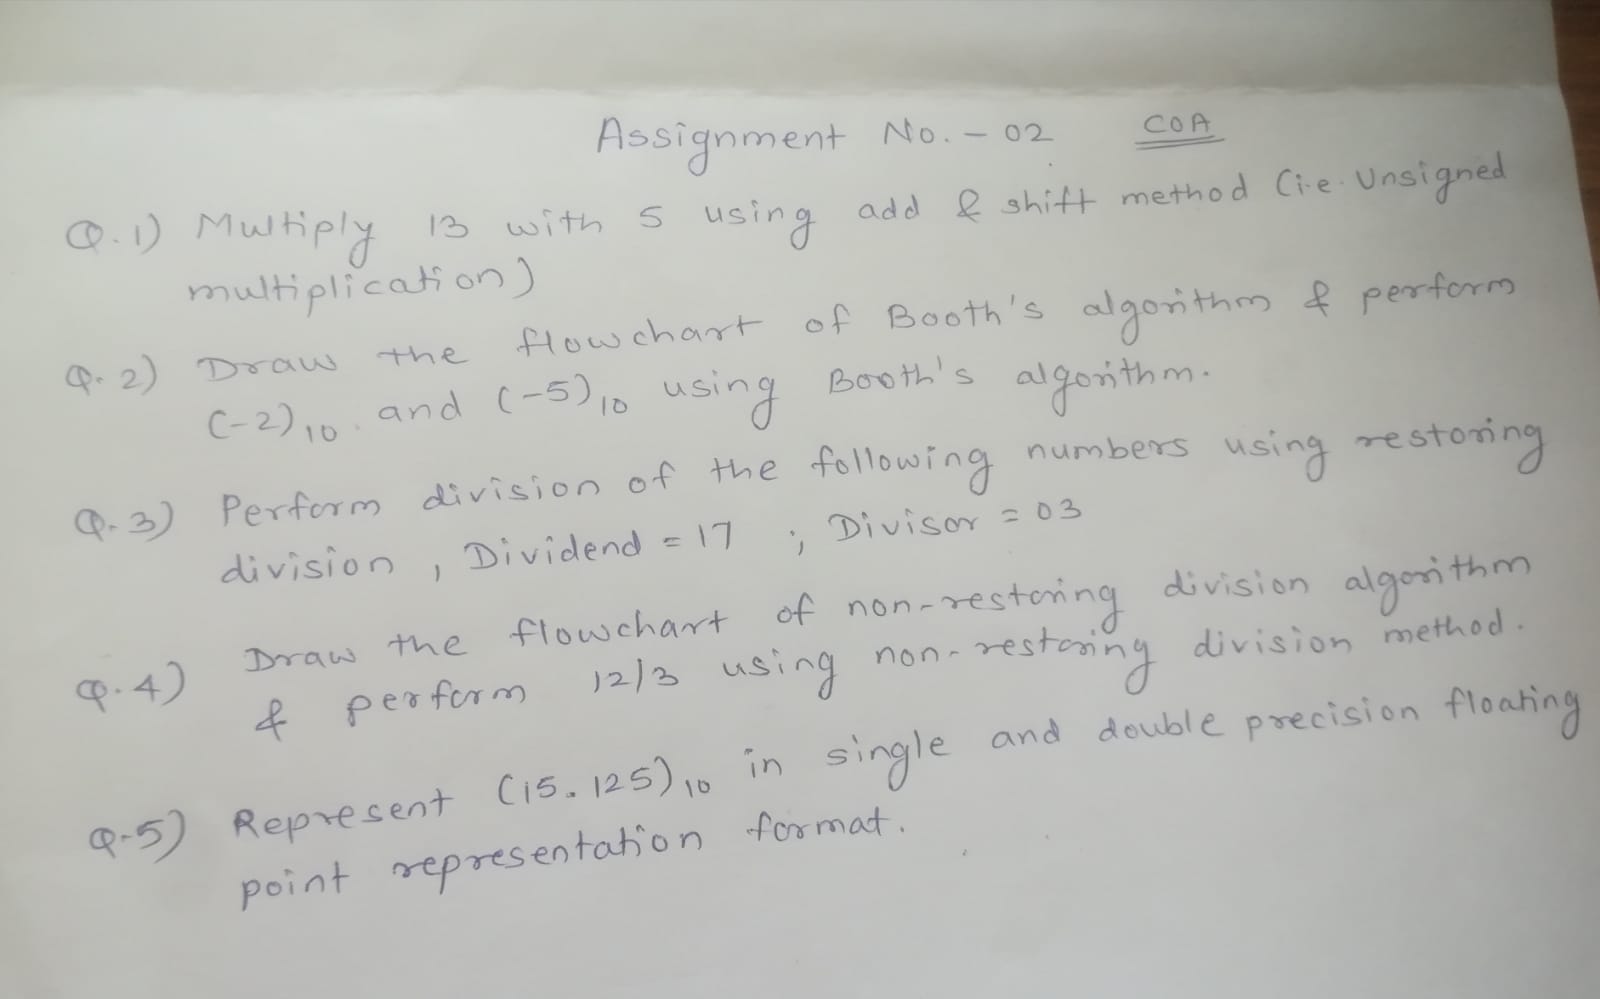 Assignment No. - 02 COA
Q.1) Multiply 13 with 5 using add & shift method (i.e. Unsigned
multiplication)
Q.2) Draw the flowchart of Booth's algorithm & perform
(-2)10 . and (-5)10 using Booth's algorithm.
Q.3) Perform division of the following numbers using restoring
division , Dividend = 17 ; Divisor = 03
Q.4) Draw the flowchart of non-restoring division algorithm
& perform 12/3 using non-restoring division method.
Q.5) Represent (15.125)10 in single and double precision floating
point representation format.